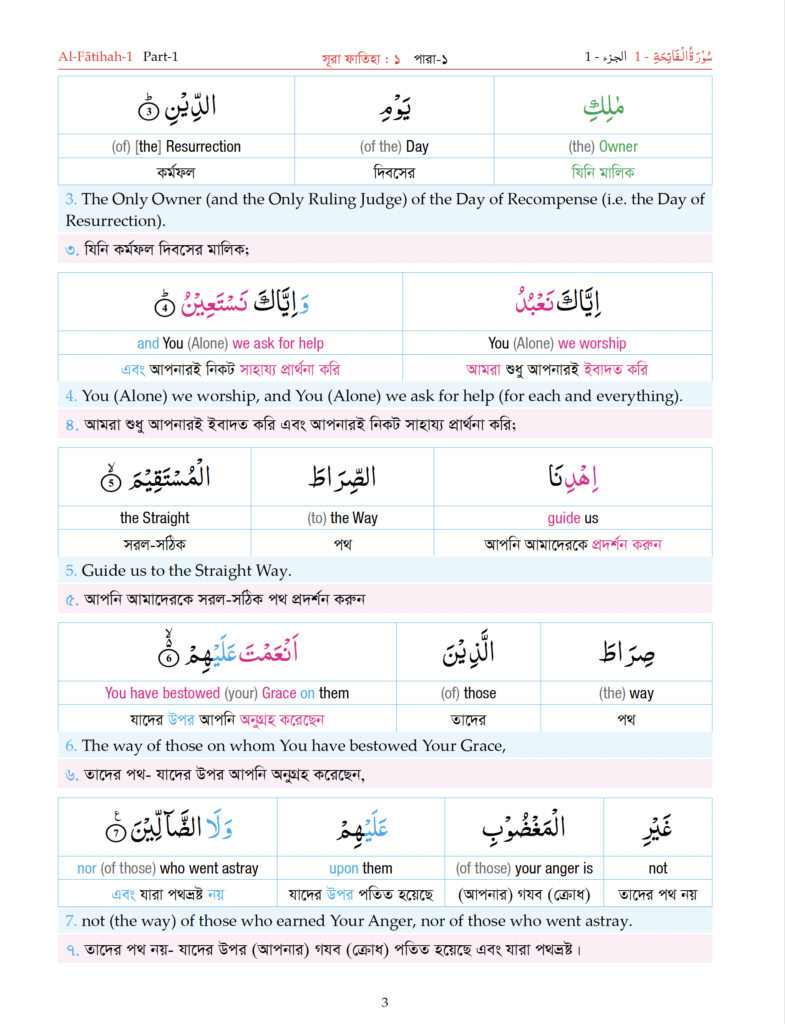 Al-Fātihah-1 Part-1 সূরা ফাতিহা : ১ পারা-১ سُوْرَةُ الْفَاتِحَةِ - 1 الجزء - 1
مٰلِكِ يَوْمِ الدِّيْنِ ۝3ؕ
(of) [the] Resurrection (of the) Day (the) Owner
কর্মফল দিবসের যিনি মালিক
3. The Only Owner (and the Only Ruling Judge) of the Day of Recompense (i.e. the Day of
Resurrection).
৩. যিনি কর্মফল দিবসের মালিক;
اِيَّاكَ نَعْبُدُ وَاِيَّاكَ نَسْتَعِيْنُ ۝4ؕ
and You (Alone) we ask for help You (Alone) we worship
এবং আপনারই নিকট সাহায্য প্রার্থনা করি আমরা শুধু আপনারই ইবাদত করি
4. You (Alone) we worship, and You (Alone) we ask for help (for each and everything).
৪. আমরা শুধু আপনারই ইবাদত করি এবং আপনারই নিকট সাহায্য প্রার্থনা করি;
اِهْدِنَا الصِّرَاطَ الْمُسْتَقِيْمَ ۝5ۙ
the Straight (to) the Way guide us
সরল-সঠিক পথ আপনি আমাদেরকে প্রদর্শন করুন
5. Guide us to the Straight Way.
৫. আপনি আমাদেরকে সরল-সঠিক পথ প্রদর্শন করুন
صِرَاطَ الَّذِيْنَ اَنْعَمْتَ عَلَيْهِمْ ۝6ۙ۬
You have bestowed (your) Grace on them (of) those (the) way
যাদের উপর আপনি অনুগ্রহ করেছেন তাদের পথ
6. The way of those on whom You have bestowed Your Grace,
৬. তাদের পথ- যাদের উপর আপনি অনুগ্রহ করেছেন,
غَيْرِ الْمَغْضُوْبِ عَلَيْهِمْ وَلَا الضَّآلِّيْنَ ۝7ۧ
nor (of those) who went astray upon them (of those) your anger is not
এবং যারা পথভ্রষ্ট নয় যাদের উপর পতিত হয়েছে (আপনার) গযব (ক্রোধ) তাদের পথ নয়
7. not (the way) of those who earned Your Anger, nor of those who went astray.
৭. তাদের পথ নয়- যাদের উপর (আপনার) গযব (ক্রোধ) পতিত হয়েছে এবং যারা পথভ্রষ্ট।
3